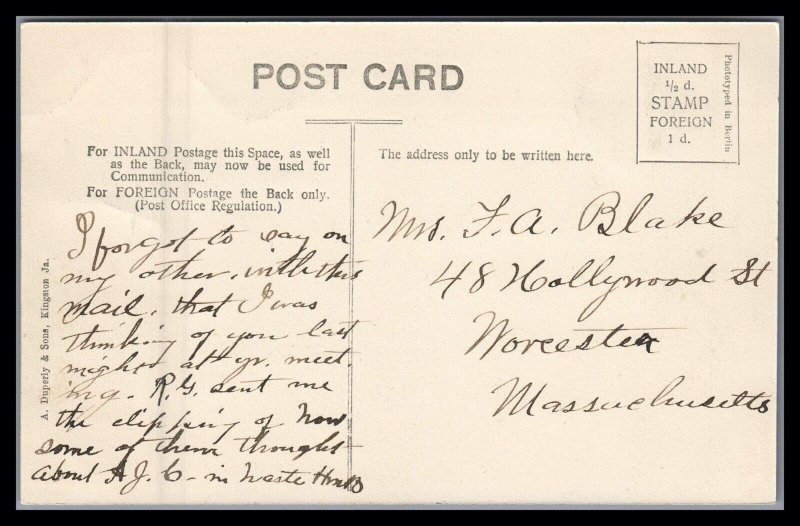 POST CARD
INLAND
½ d.
STAMP
FOREIGN
1 d.
Phototyped in Berlin
For INLAND Postage this Space, as well
as the Back, may now be used for
Communication.
For FOREIGN Postage the Back only.
(Post Office Regulation.)
The address only to be written here.
A. Duperly & Sons, Kingston Ja.
I forgot to say on
my other, with this
mail, that I was
thinking of you last
night at yr. meet.
ing. R.G. sent me
the clipping of how
some of them thought
about A J. C - in haste
Mrs. F. A. Blake
48 Hollywood St
Worcester
Massachusetts